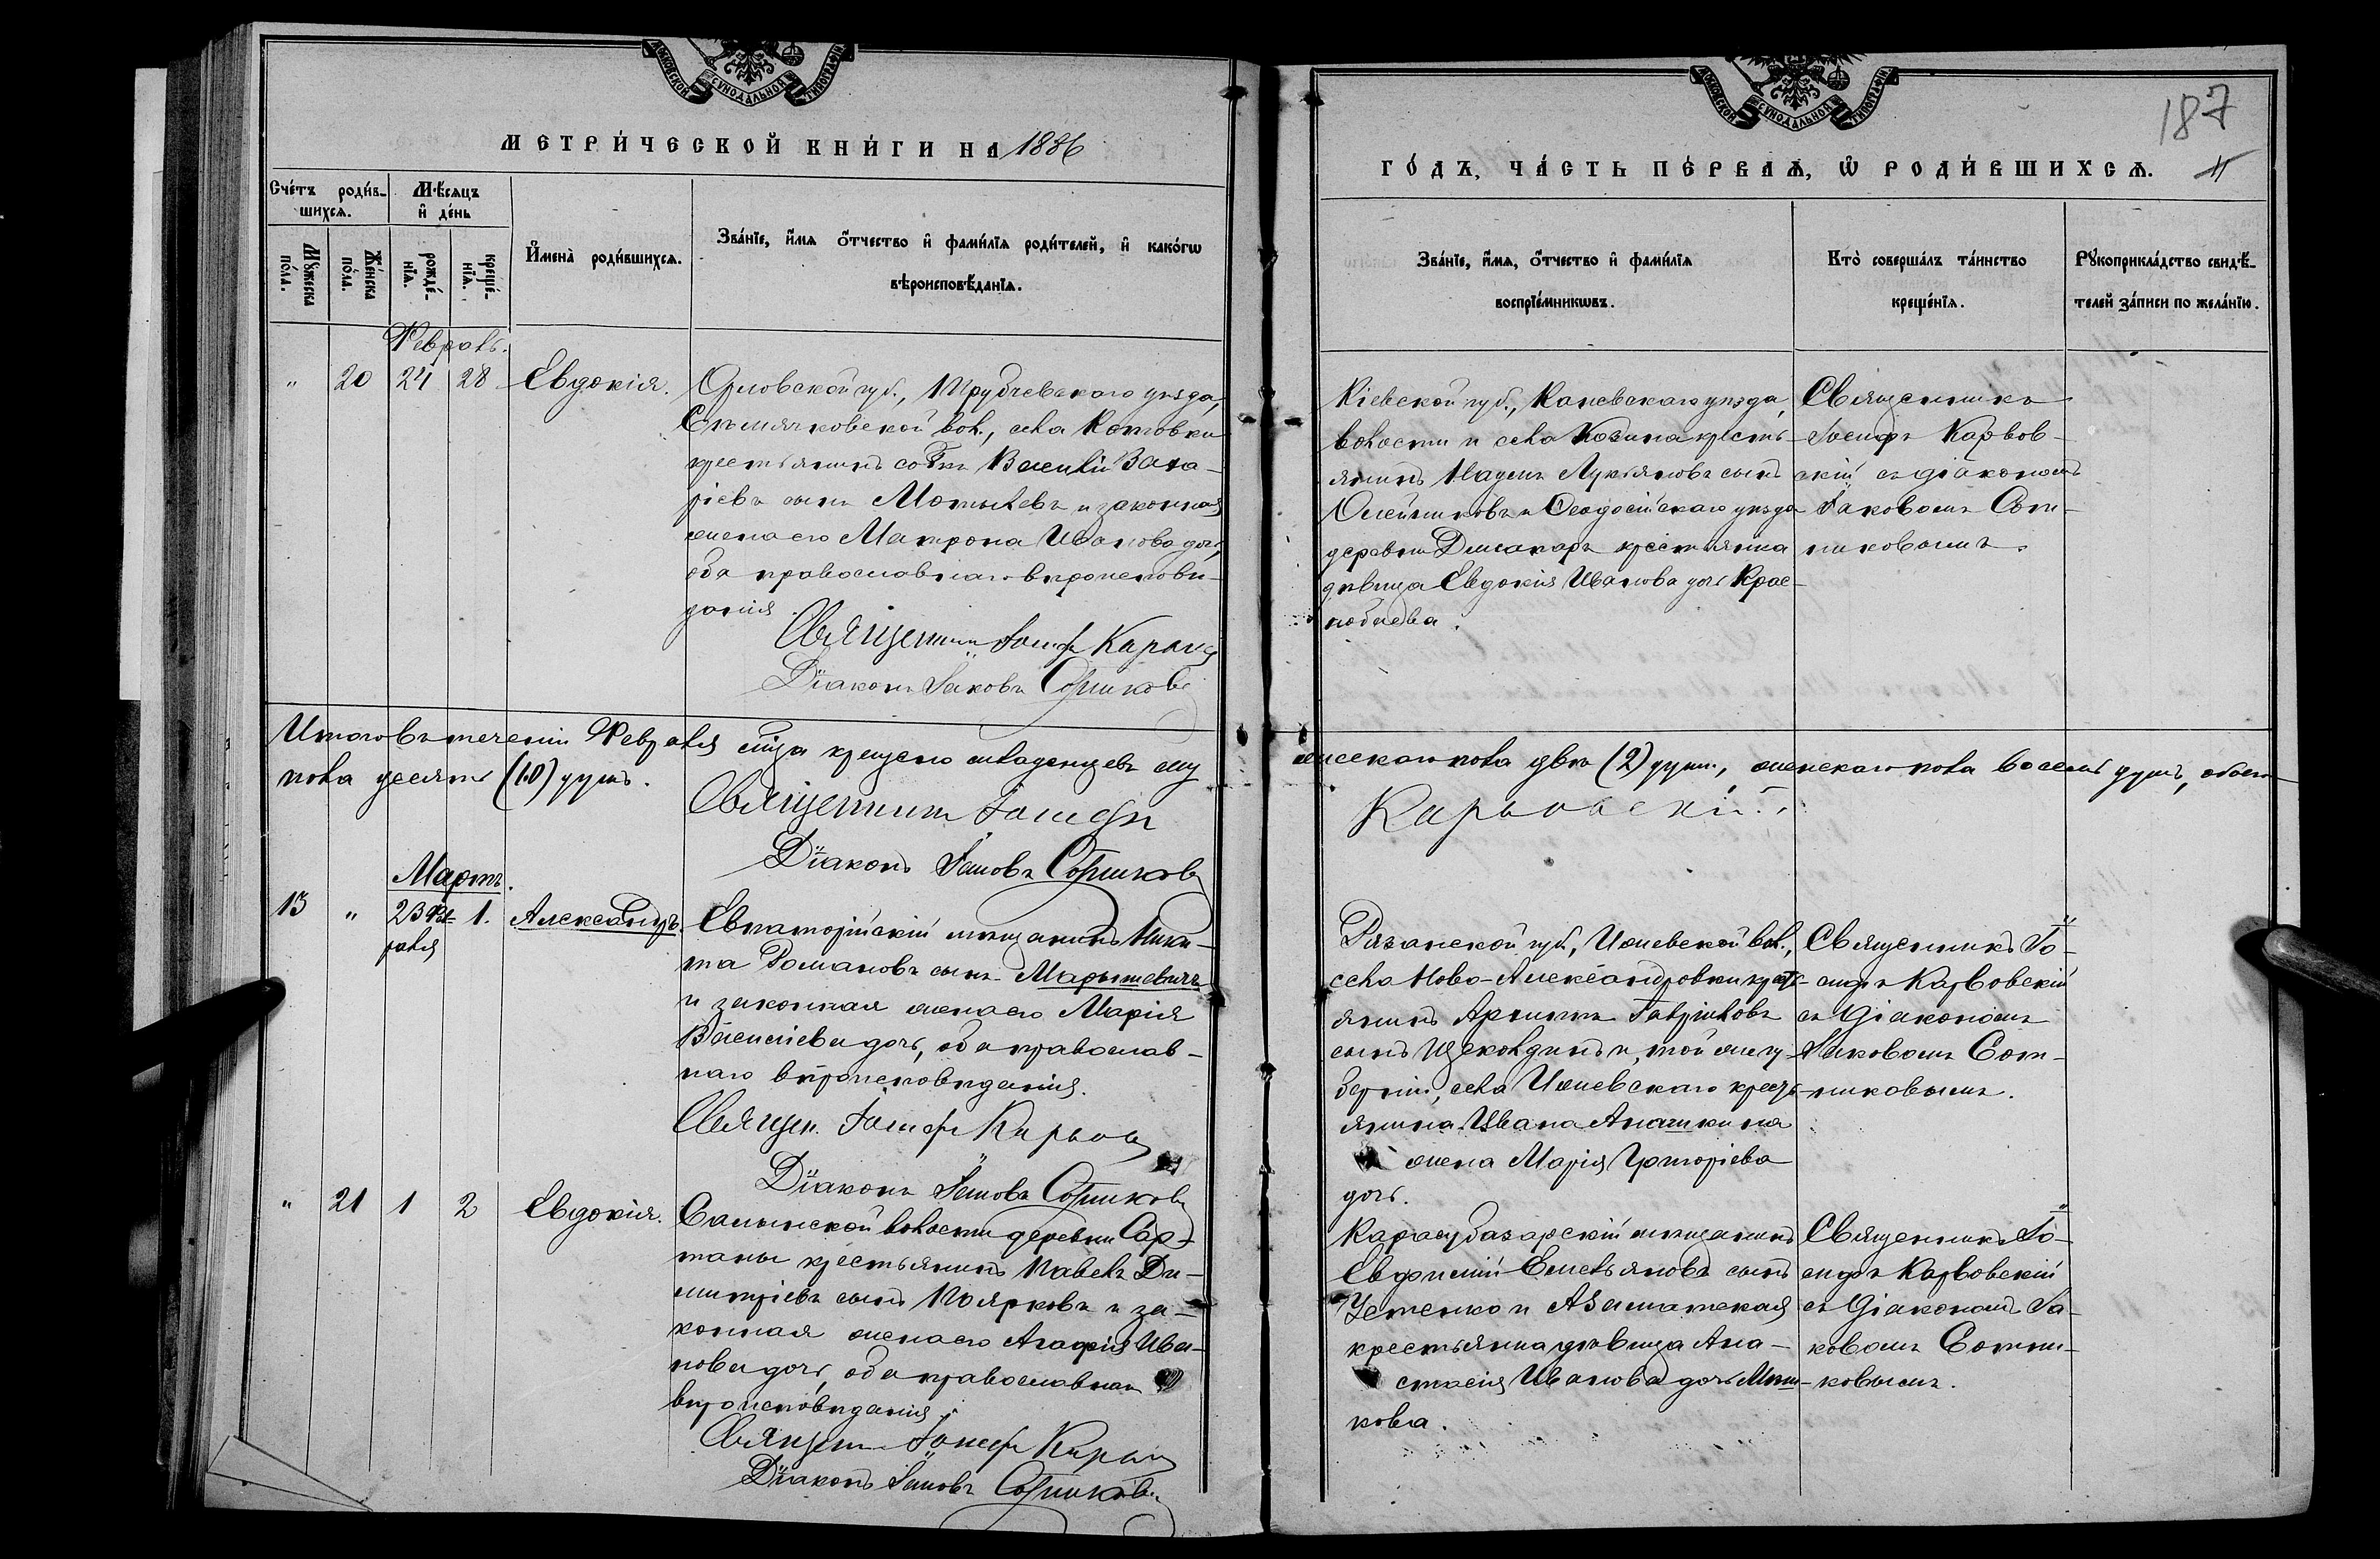 МОСКОВСКОЙ СѴНОДАЛЬНОЙ ТИПОГРАФІИ
МЕТРИ́ЧЕСКОЙ КНИ́ГИ НА 1886
Сче́тъ роди́в-
шихсѧ.
Мѣ́сяцъ
и҆ де́нь
Мꙋ́жеска
по́ла.
Же́нска
по́ла.
рожде́-
нїѧ.
креще́-
нїѧ.
И҆мена̀ роди́вшихсѧ.
Зва́нїе, и҆́мѧ ѻ҆́тчество и҆ фами́лїѧ роди́телей, и҆ како́гѡ
вѣроисповѣ́данїѧ.
Февраль.
" 20 24 28 Евдокія.
Орловской губ., Трубчевскаго уѣзда,
вол., села Котовки
крестьянинъ собст. Василій Заха-
ріевъ сынъ Мотылевъ и законная
жена его Матрона Иванова дочь,
оба православнаго вѣроисповѣ-
данія
Священникъ Іосифъ Карвов
Діаконъ Іаковъ Сотниковъ
Итого въ теченіи Февраля мѣсяца крещено младенцевъ му
пола десять (10) душъ.
Священникъ Іосифъ
Діаконъ Іаковъ Сотниковъ
Мартъ.
13 " 23 Фев-
раля
1. Александръ.
Евпаторійскій мѣщанинъ Ники-
та Романовъ сынъ Марышевичъ
и законная жена его Марія
Васильева дочь, оба православ-
наго вѣроисповѣданія.
Священ. Іосифъ Карвов
Діаконъ Іаковъ Сотниковъ
" 21 1 2 Евдокія.
Салынской волости деревни Сар-
таны крестьянинъ Павелъ Ди-
митріевъ сынъ Поярковъ и за-
конная жена его Агафія Ива-
нова дочь, оба православнаго
вѣроисповѣданія.
Священникъ Іосифъ Карвов
Діаконъ Іаковъ Сотниковъ
МОСКОВСКОЙ СѴНОДАЛЬНОЙ ТИПОГРАФІИ
187
ГО́ДЪ, ЧА́СТЬ ПЕ́РВАѦ, Ѡ҆ РОДИ́ВШИХСѦ.
Зва́нїе, и҆́мѧ, ѻ҆́тчество и҆ фами́лїѧ
воспрїе́мникѡвъ.
Кто̀ соверша́лъ та́инство
креще́нїѧ.
Рꙋкоприкла́дство свидѣ́-
телей за́писи по жела́нїю.
Кіевской губ., Каневскаго уѣзда,
волости и села Козина кресть-
янинъ Наумъ Лукьяновъ сынъ
Олейниковъ и Ѳеодосійскаго уѣзда
деревни Джанкоръ крестьянка
дѣвица Евдокія Иванова дочь Крас-
нобаева.
Священникъ
Іосифъ Карвов-
скій съ діакономъ
Іаковомъ Сот-
никовымъ.
жескаго пола двѣ (2) души, женскаго пола восемь душъ, обоего
Карвовскій
Рязанской губ., Ижевской вол.,
села Ново-Александровки кресть-
янинъ Архипъ Гавріиловъ
сынъ Щеколдинъ и той же гу-
берніи, села Ижевскаго кресть-
янина Ивана Анашкина
жена Марія Григоріева
дочь.
Священникъ Іо-
сифъ Карвовскій
съ діакономъ
Іаковомъ Сот-
никовымъ.
Карасубазарскій мѣщанинъ
Евфимій Емельяновъ сынъ
Устенко и Азаматская
крестьянка дѣвица Ана-
стасія Иванова дочь Миш-
кова.
Священникъ Іо-
сифъ Карвовскій
съ діакономъ Іа-
ковомъ Сотни-
ковымъ.